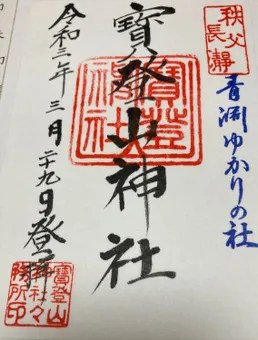 秩父
長瀞
青淵ゆかりの社
寳登山神社
寳登
山神
社
令和三年三月二十九日登拝
寳登山
神社々
務所印